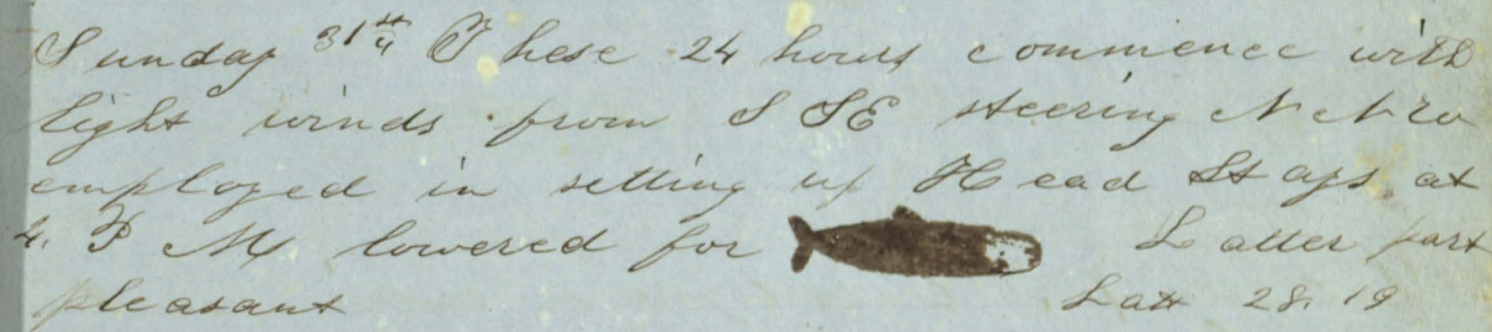 Sunday 31st These 24 hours commence with
light winds from S SE steering N N W
employed in setting up Head Stays at
4. P M lowered for Latter part
pleasant Latt 28.19